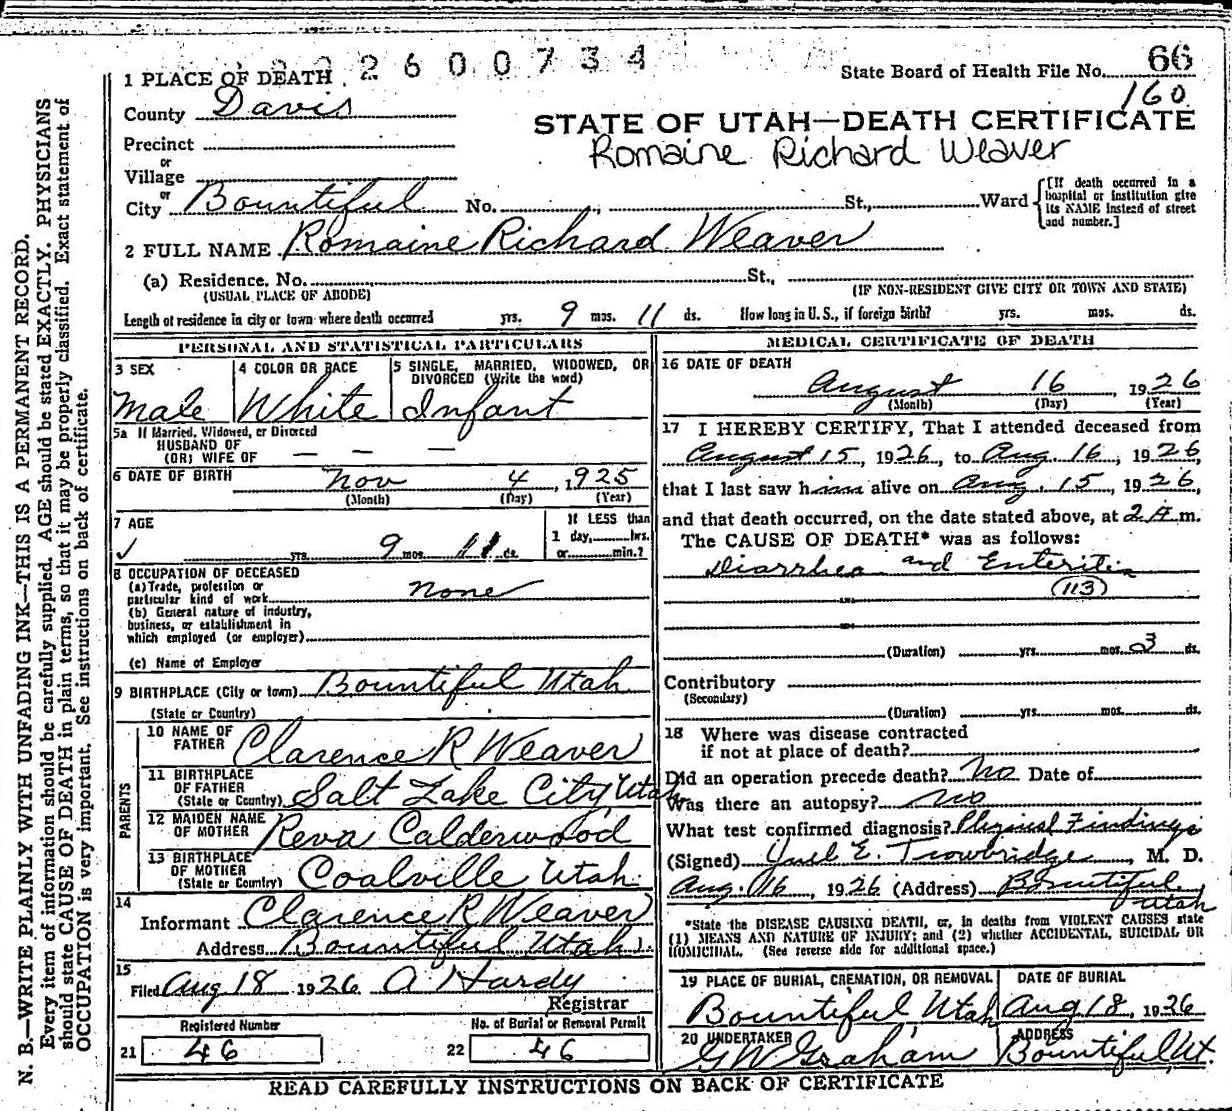 2600734
State Board of Health File No. 66
160
1 PLACE OF DEATH
County Davis
STATE OF UTAH—DEATH CERTIFICATE
Romaine Richard Weaver
Precinct
or
Village
or
City Bountiful No. St., Ward
[If death occurred in a hospital or institution give its NAME instead of street and number.]
2 FULL NAME Romaine Richard Weaver
(a) Residence, No. St.,
(USUAL PLACE OF ABODE) (IF NON-RESIDENT GIVE CITY OR TOWN AND STATE)
Length of residence in city or town where death occurred yrs. 9 mos. 11 ds. How long in U. S., if foreign birth? yrs. mos. ds.
PERSONAL AND STATISTICAL PARTICULARS
3 SEX
Male
4 COLOR OR RACE
White
5 SINGLE, MARRIED, WIDOWED, OR DIVORCED (Write the word)
Infant
5a If Married, Widowed, or Divorced
HUSBAND OF
(OR) WIFE OF — — —
6 DATE OF BIRTH Nov 4, 1925
(Month) (Day) (Year)
7 AGE
If LESS than
1 day, hrs.
or min.?
✓ yrs. 9 mos. 11 ds.
8 OCCUPATION OF DECEASED
(a) Trade, profession or
particular kind of work None
(b) General nature of industry,
business, or establishment in
which employed (or employer)
(c) Name of Employer
9 BIRTHPLACE (City or town) Bountiful Utah
(State or Country)
PARENTS
10 NAME OF FATHER Clarence R Weaver
11 BIRTHPLACE OF FATHER
(State or Country) Salt Lake City, Utah
12 MAIDEN NAME OF MOTHER Reva Calderwood
13 BIRTHPLACE OF MOTHER
(State or Country) Coalville Utah.
14
Informant Clarence R Weaver
Address Bountiful Utah
15
Filed Aug 18 1926 A Hardy
Registrar
Registered Number
21 46
No. of Burial or Removal Permit
22 46
MEDICAL CERTIFICATE OF DEATH
16 DATE OF DEATH
August 16 1926
(Month) (Day) (Year)
17 I HEREBY CERTIFY, That I attended deceased from
August 15, 1926, to Aug. 16, 1926,
that I last saw him alive on Aug. 15, 1926,
and that death occurred, on the date stated above, at 2 A m.
The CAUSE OF DEATH* was as follows:
Diarrhea and Enteritis
(113)
(Duration) yrs. mos. 3 ds.
Contributory
(Secondary)
(Duration) yrs. mos. ds.
18 Where was disease contracted
if not at place of death?
Did an operation precede death? No Date of
Was there an autopsy? no
What test confirmed diagnosis? Physical Findings
(Signed) Juel E. Trowbridge, M. D.
Aug. 16, 1926 (Address) Bountiful,
Utah
*State the DISEASE CAUSING DEATH, or, in deaths from VIOLENT CAUSES state
(1) MEANS AND NATURE OF INJURY; and (2) whether ACCIDENTAL, SUICIDAL OR
HOMICIDAL. (See reverse side for additional space.)
19 PLACE OF BURIAL, CREMATION, OR REMOVAL
Bountiful Utah
DATE OF BURIAL
Aug 18, 1926
20 UNDERTAKER
G W Graham
ADDRESS
Bountiful Ut.
READ CAREFULLY INSTRUCTIONS ON BACK OF CERTIFICATE
N. B.—WRITE PLAINLY WITH UNFADING INK—THIS IS A PERMANENT RECORD.
Every item of information should be carefully supplied. AGE should be stated EXACTLY. PHYSICIANS
should state CAUSE OF DEATH in plain terms, so that it may be properly classified. Exact statement of
OCCUPATION is very important. See instructions on back of certificate.